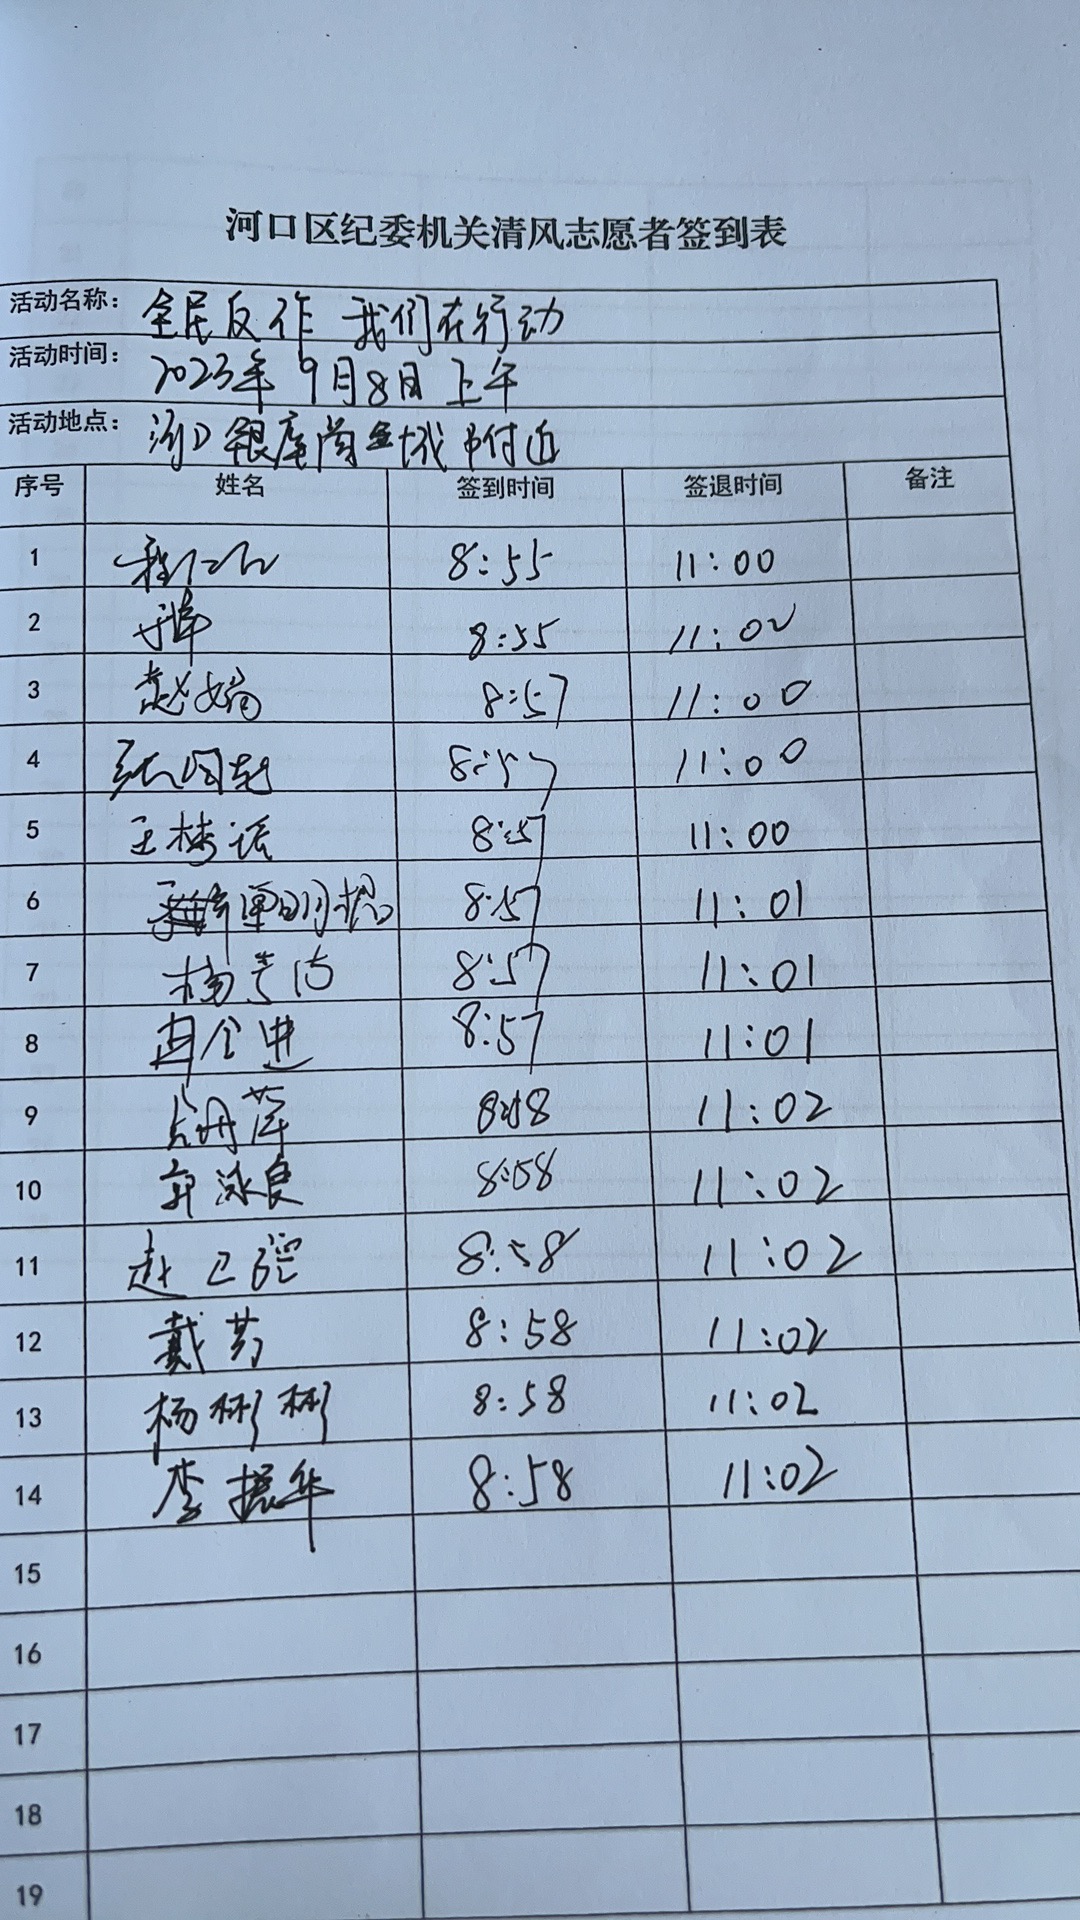 河口区纪委机关清风志愿者签到表
活动名称: 全民反诈 我们在行动
活动时间: 2023年9月8日上午
活动地点: 河口银座商业城附近
序号 姓名 签到时间 签退时间 备注
1 8:55 11:00
2 8:55 11:02
3 赵娟 8:57 11:00
4 8:57 11:00
5 8:57 11:00
6 8:57 11:01
7 杨 8:57 11:01
8 8:57 11:01
9 8:58 11:02
10 郭泳良 8:58 11:02
11 赵 8:58 11:02
12 戴芳 8:58 11:02
13 杨彬彬 8:58 11:02
14 李振华 8:58 11:02
15
16
17
18
19